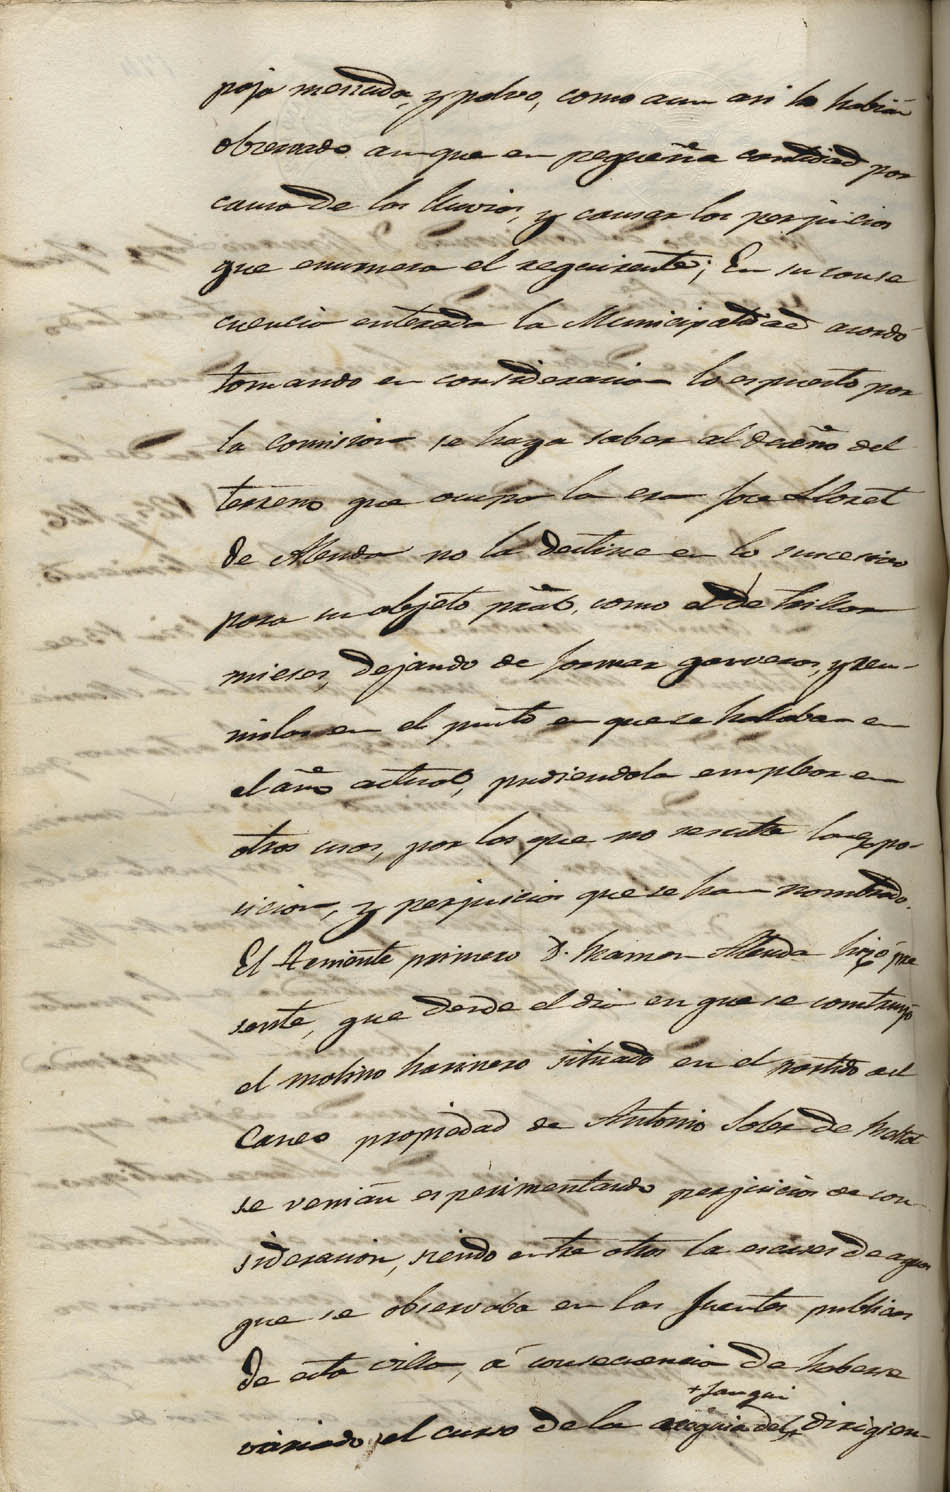 paja menuda, y polvo, como aun asi lo habian
obserbado aunque en pequeña cantidad por
causa de las lluvias, y causar los perjuicios
que enumera el requirente; En su conse
cuencia enterada la Municipalidad acordó
tomando en consideracion lo espuesto por
la comision se haga saber al dueño del
terreno que ocupa la era Jose Lloret
de Alenda no la destine en lo sucesivo
para su objeto pral, como el de trillar
mieses, dejando de formar garveras, y reu-
nirlas en el punto en que se hallaban en
el año actual, pudiendola emplear en
otros usos, por los que no resulte la espo-
sicion, y perjuicios que se han nombrado.
El Teniente primero D. Ramon Alenda hizo pre
sente, que desde el dia en que se construyó
el molino harinero situado en el partido del
propiedad de Antonio Soler de
se venian esperimentando perjuicios de con-
sideracion, siendo entre otros la escases de aguas
que se observaba en las fuentes publicas
de esta villa, á consecuencia de haberse
+ fanqui
variado el curso de la acequia del + dirigien-